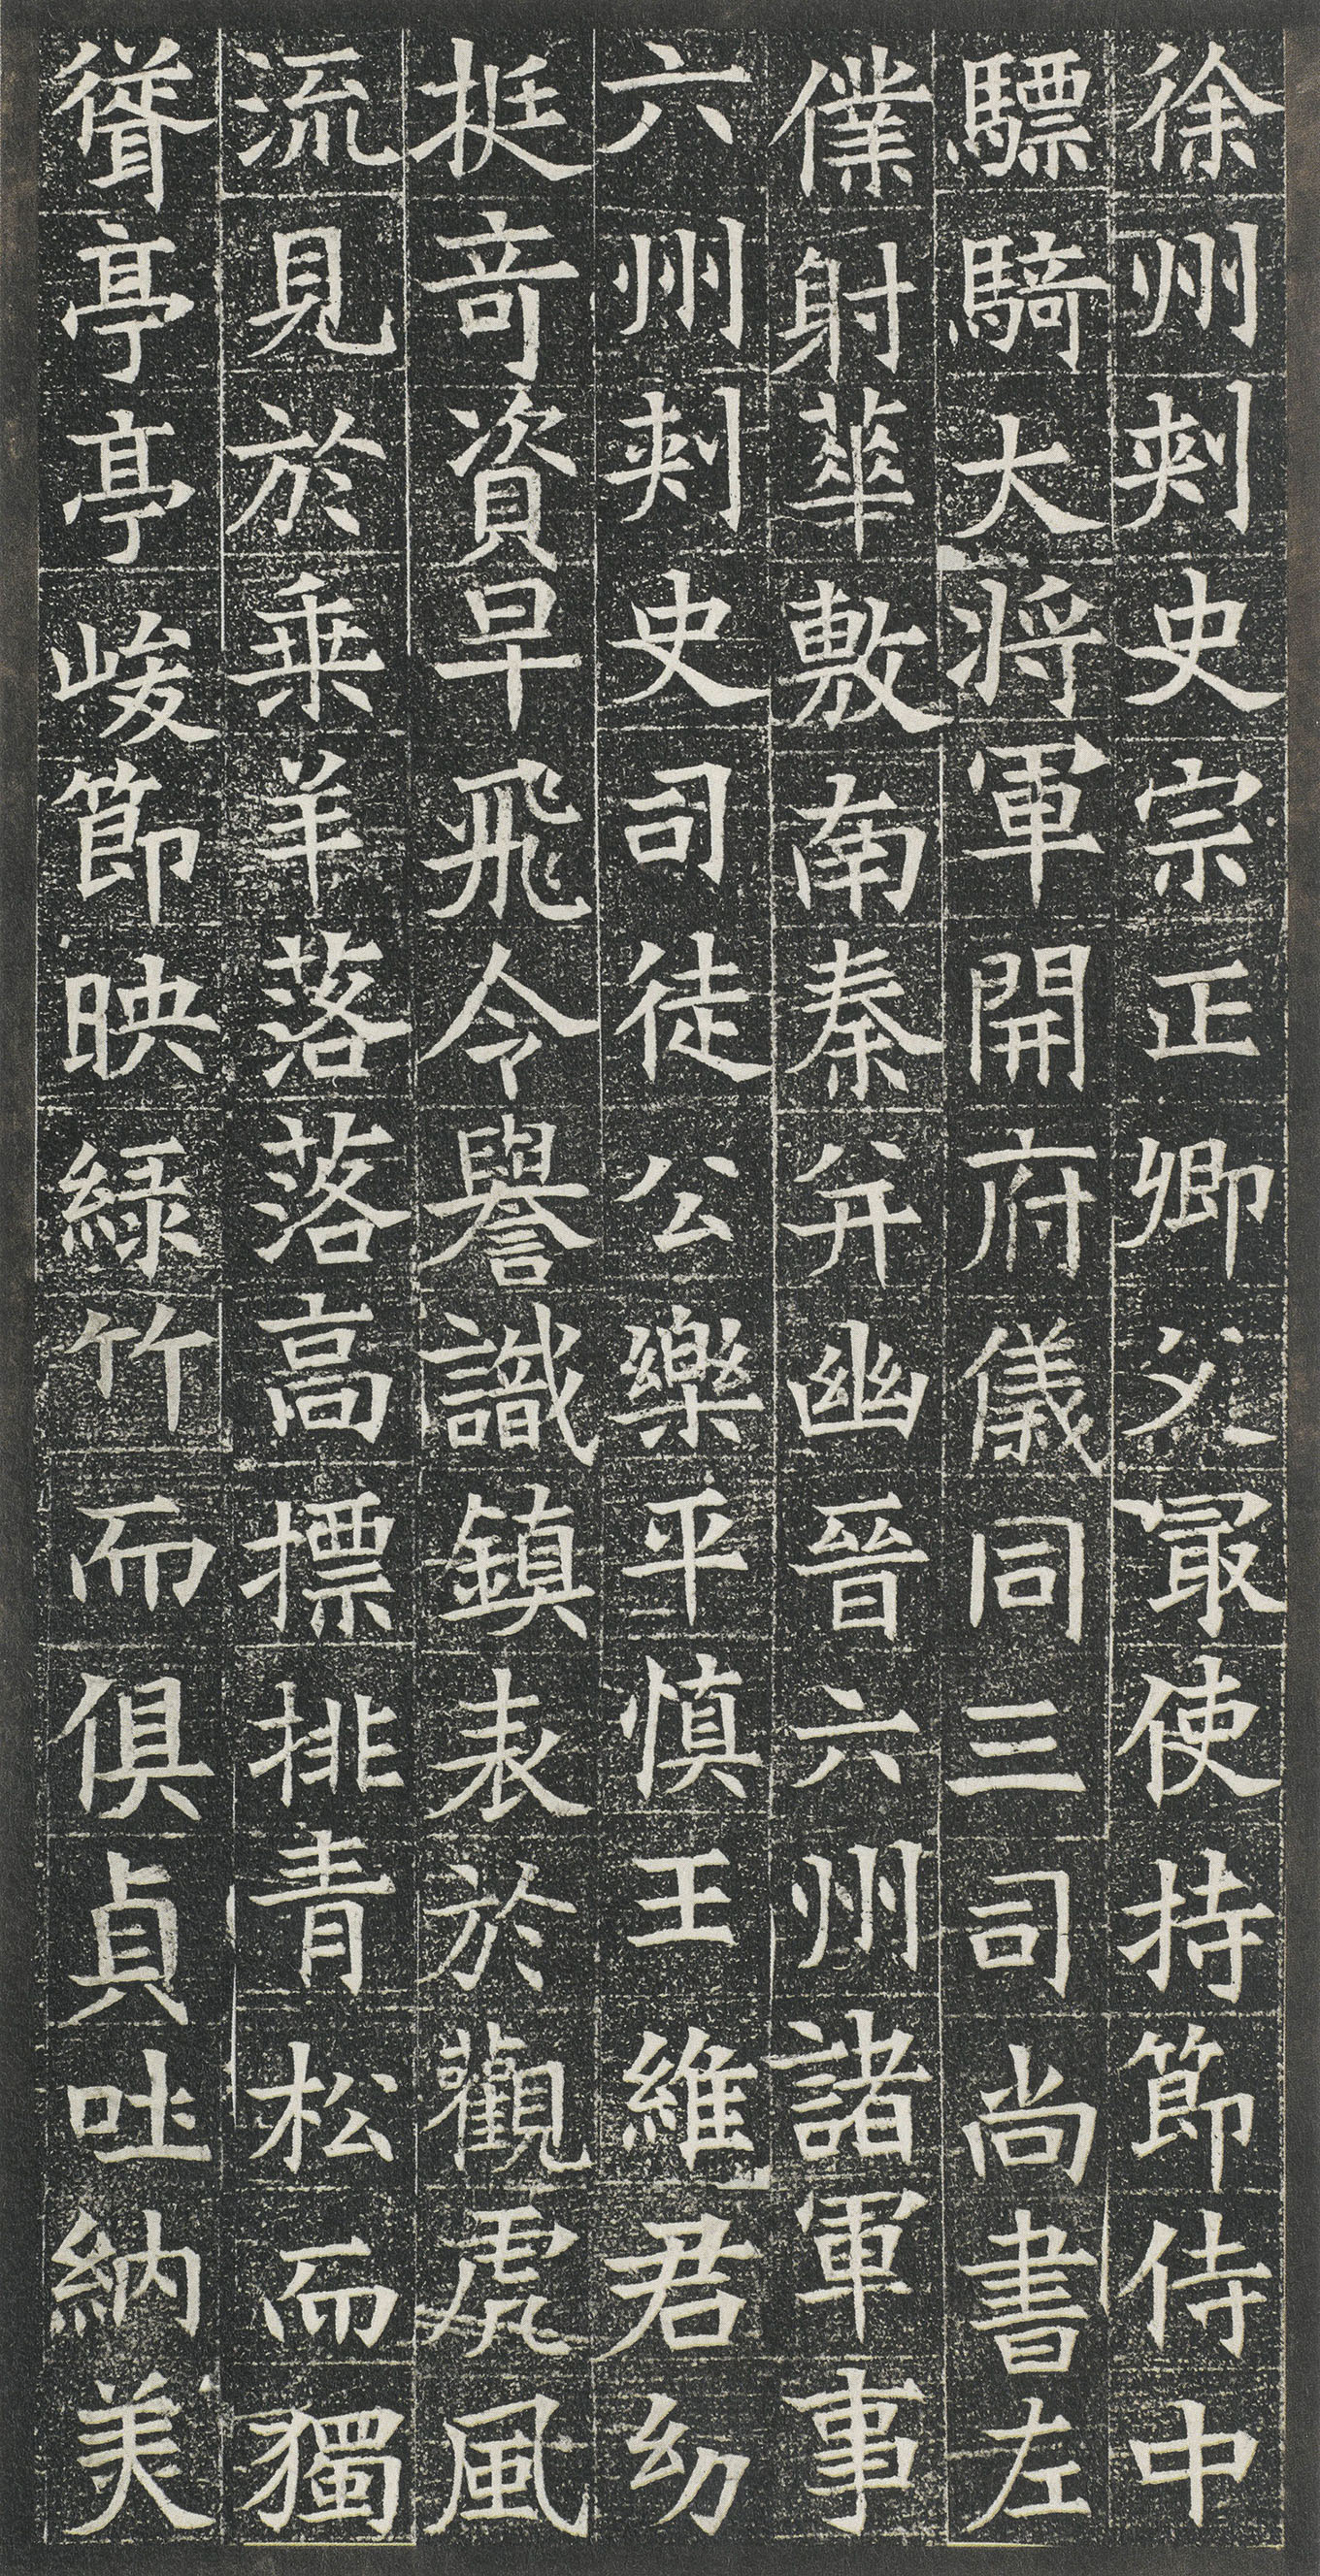 徐州刺史宗正卿父冣使持節侍中
驃騎大將軍開府儀同三司尚書左
僕射華敷南秦并幽晉六州諸軍事
六州刺史司徒公樂平慎王維君幼
挺奇資早飛令譽識鎮表於觀虎風
流見於乗羊落落高摽排青松而獨
聳亭亭峻節映緑竹而俱貞吐納美